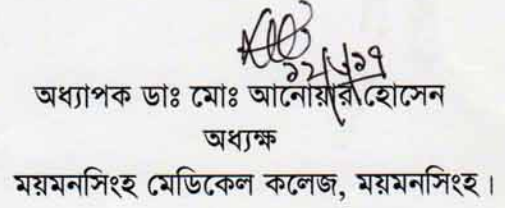 অধ্যাপক ডাঃ মোঃ আনোয়ার হোসেন
অধ্যক্ষ
ময়মনসিংহ মেডিকেল কলেজ, ময়মনসিংহ।